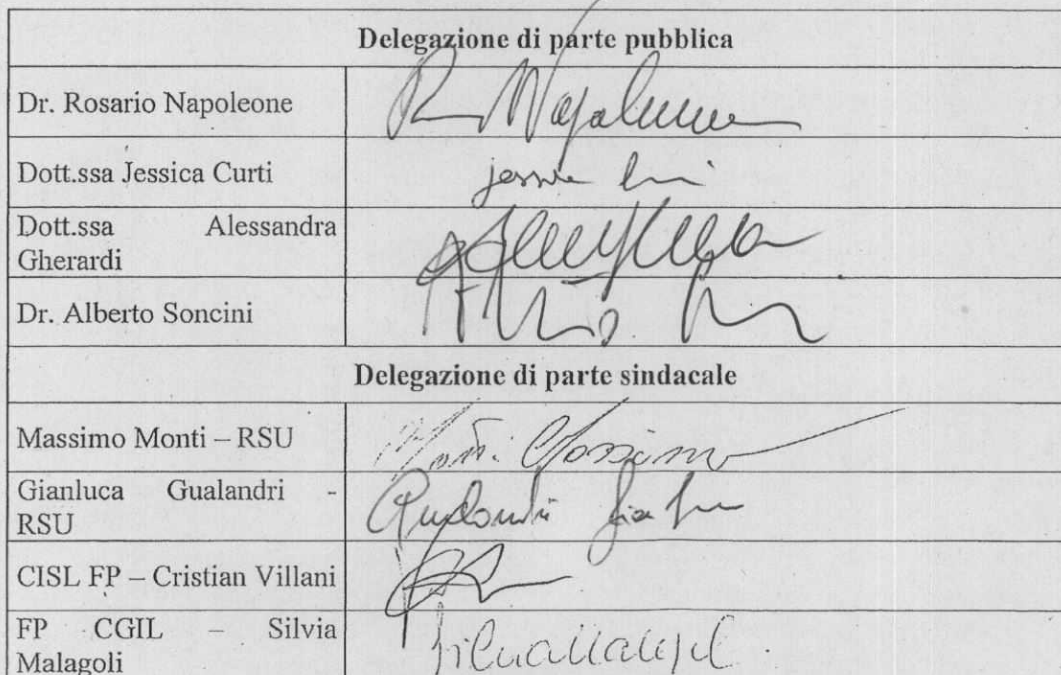 Delegazione di parte pubblica
Dr. Rosario Napoleone
R. Napoleone
Dott.ssa Jessica Curti
Jessica
Dott.ssa Alessandra
Gherardi
Dr. Alberto Soncini
Delegazione di parte sindacale
Massimo Monti – RSU
Monti Massimo
Gianluca Gualandri -
RSU
Gualandri
CISL FP – Cristian Villani
FP CGIL – Silvia
Malagoli
Silvia Malagoli